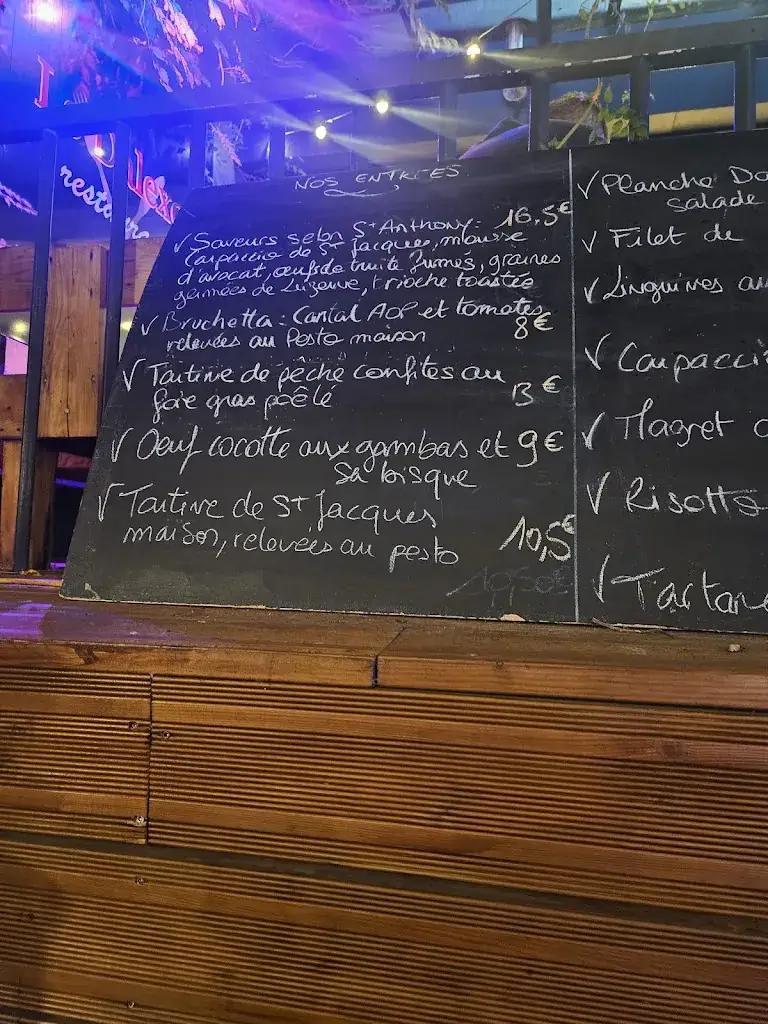 restaurant
NOS ENTRÉES
✓ Saveurs selon St Anthony: 16,5€
Carpaccio de St Jacques, mousse
d'avocat, œufs de truite fumés, graines
germées de Luzerne, brioche toastée
✓ Bruchetta: Cantal AOP et tomates
relevées au Pesto maison 8€
✓ Tartine de pêche confites au
foie gras poêlé 13€
✓ Oeuf cocotte aux gambas et 9€
sa bisque
✓ Tartine de St Jacques
maison, relevées au pesto 10,5€
10,50€
✓ Planche
salade
✓ Filet de
✓ Linguines au
✓ Carpaccio
✓ Magret
✓ Risotto
✓ Tartare